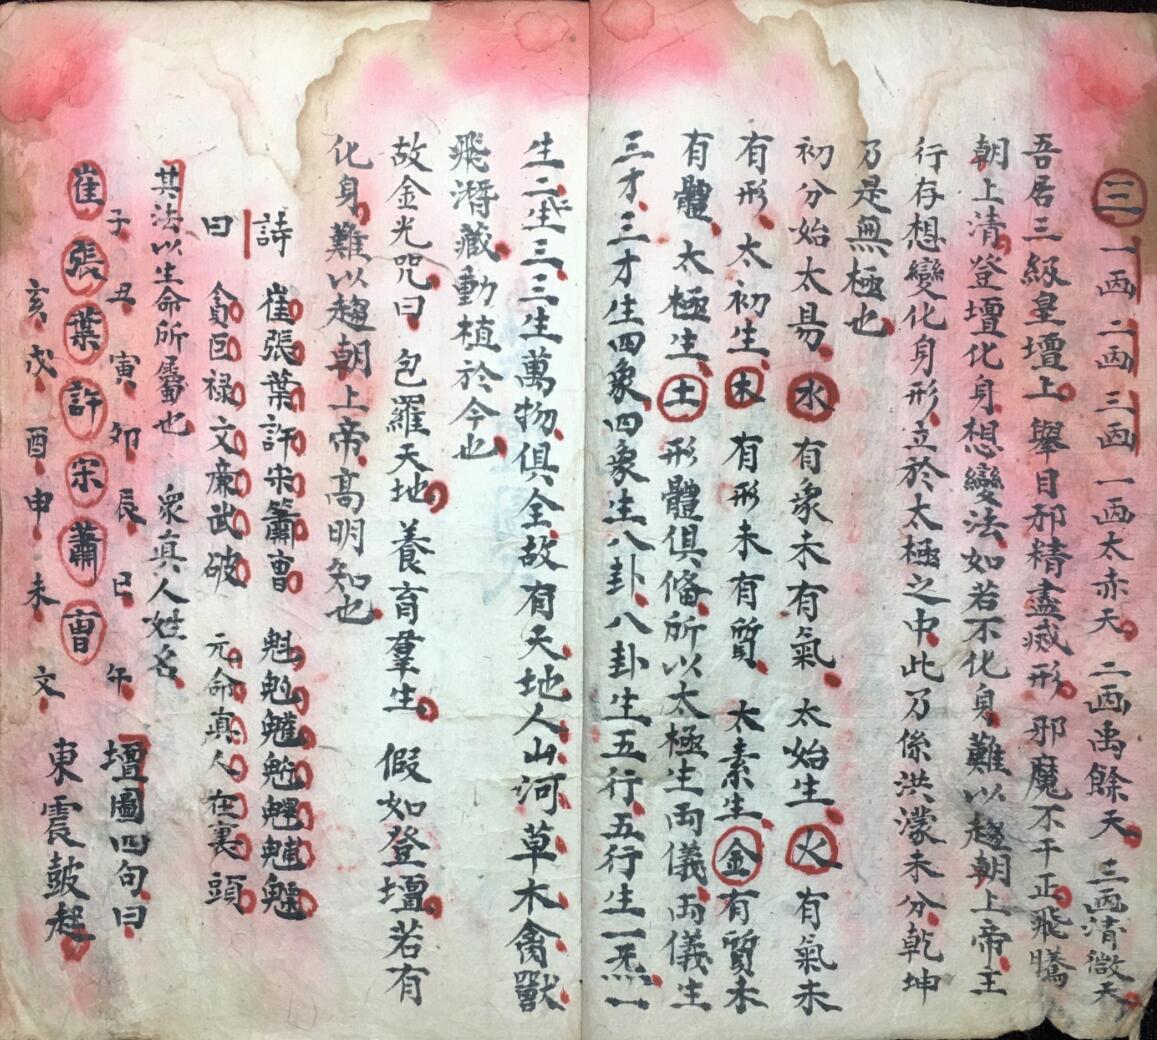 三 一兩 二兩 三兩 一兩太赤天 二兩禹餘天 三兩清微天
吾居三級皇壇上舉目邪精盡烕形邪魔不干正飛騰
朝上清登壇化身想變法如若不化身難以趨朝上帝王
行存想變化身形立於太極之中此乃係洪濛未分乾坤
乃是無極也
初分始太易水有象未有氣 太始生火有氣未
有形太初生木有形未有質 太素生金有質未
有體太極生土形體俱俻所以太極生両儀両儀生
三才三才生四象四象生八卦八卦生五行五行生一炁一
生二二生三三生萬物俱全故有天地人山河草木禽獸
飛潛藏動植於今也
故金光咒曰 包羅天地養育羣生 假如登壇若有
化身難以趨朝上帝高明知也
詩 崔張葉許宋簫曺 魁䰢魒魓
曰 貪巨禄文廉武破 元命真人在裏頭
其法以生命所屬也 衆真人姓名
子 丑 寅 卯 辰 巳 午 壇圖四句曰
崔 張 葉 許 宋 蕭 曺
亥 戌 酉 申 未 文 東震鼓起